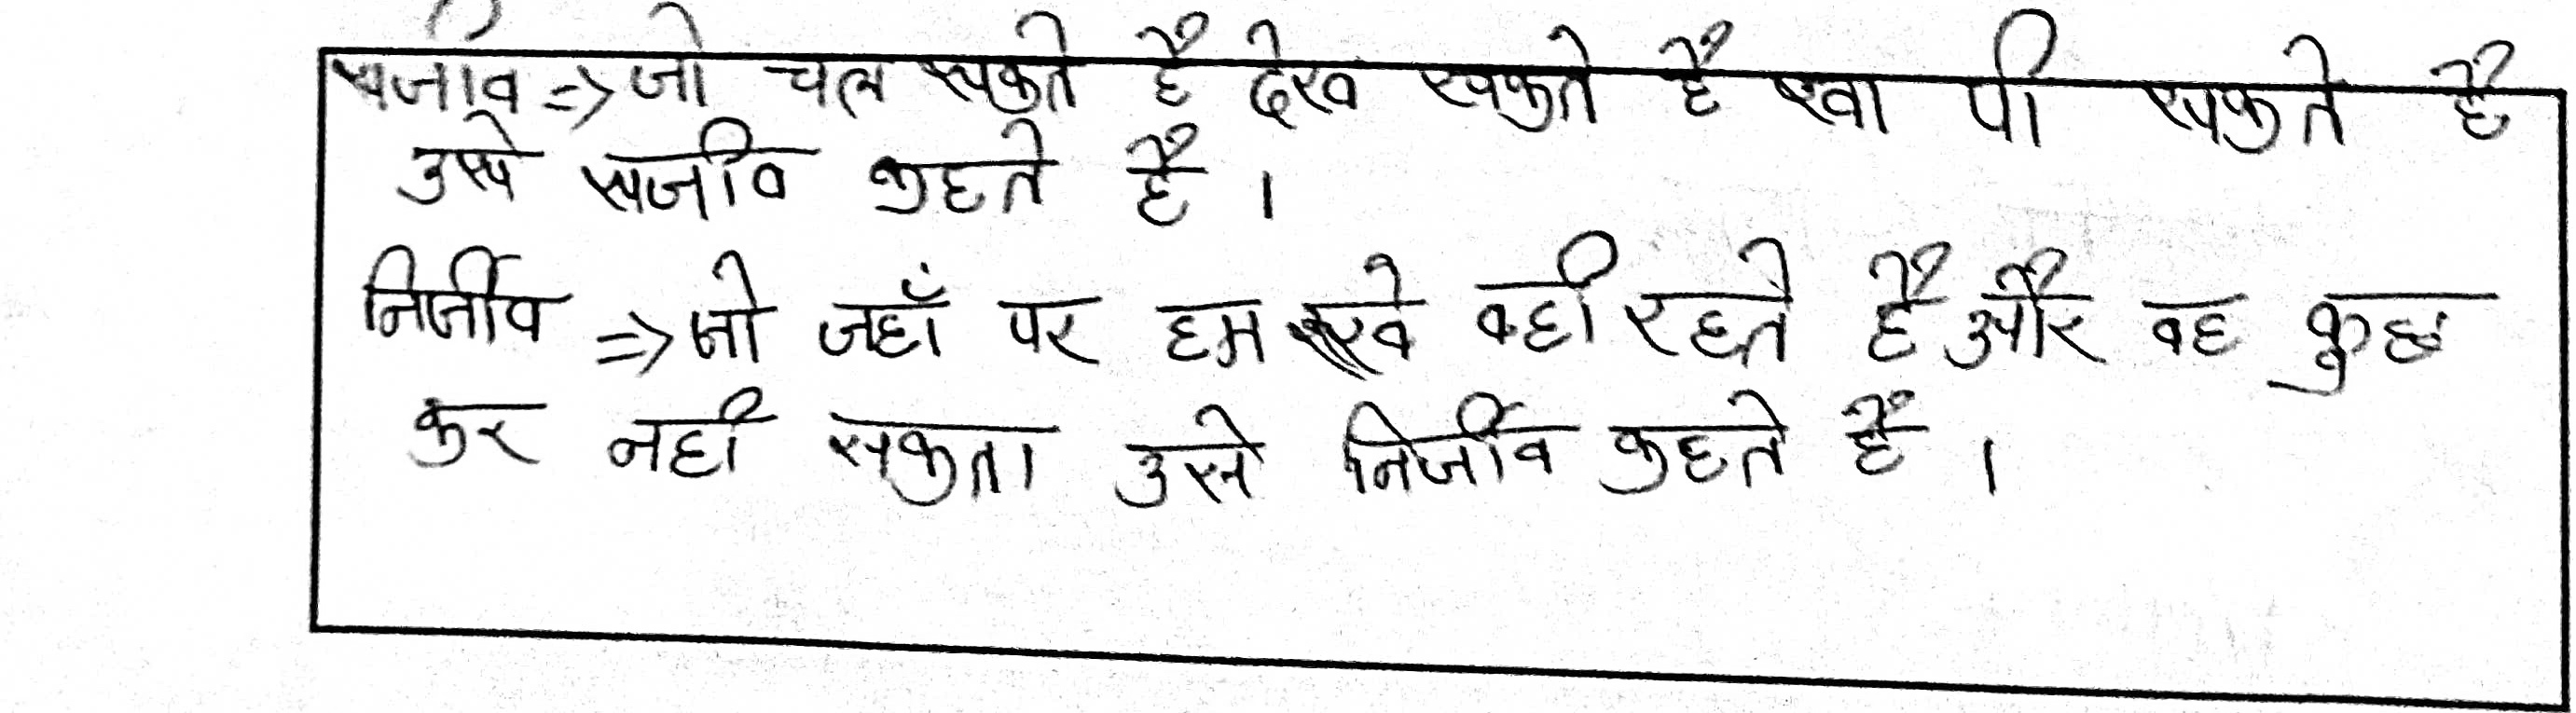 सजीव => जो चल सकते है देख सकते है खा पी सकते है
उसे सजीव कहते है ।
निर्जीव => जो जहाँ पर हम रखे वही रहते है और वह कुछ
कर नही सकता उसे निर्जीव कहते है ।